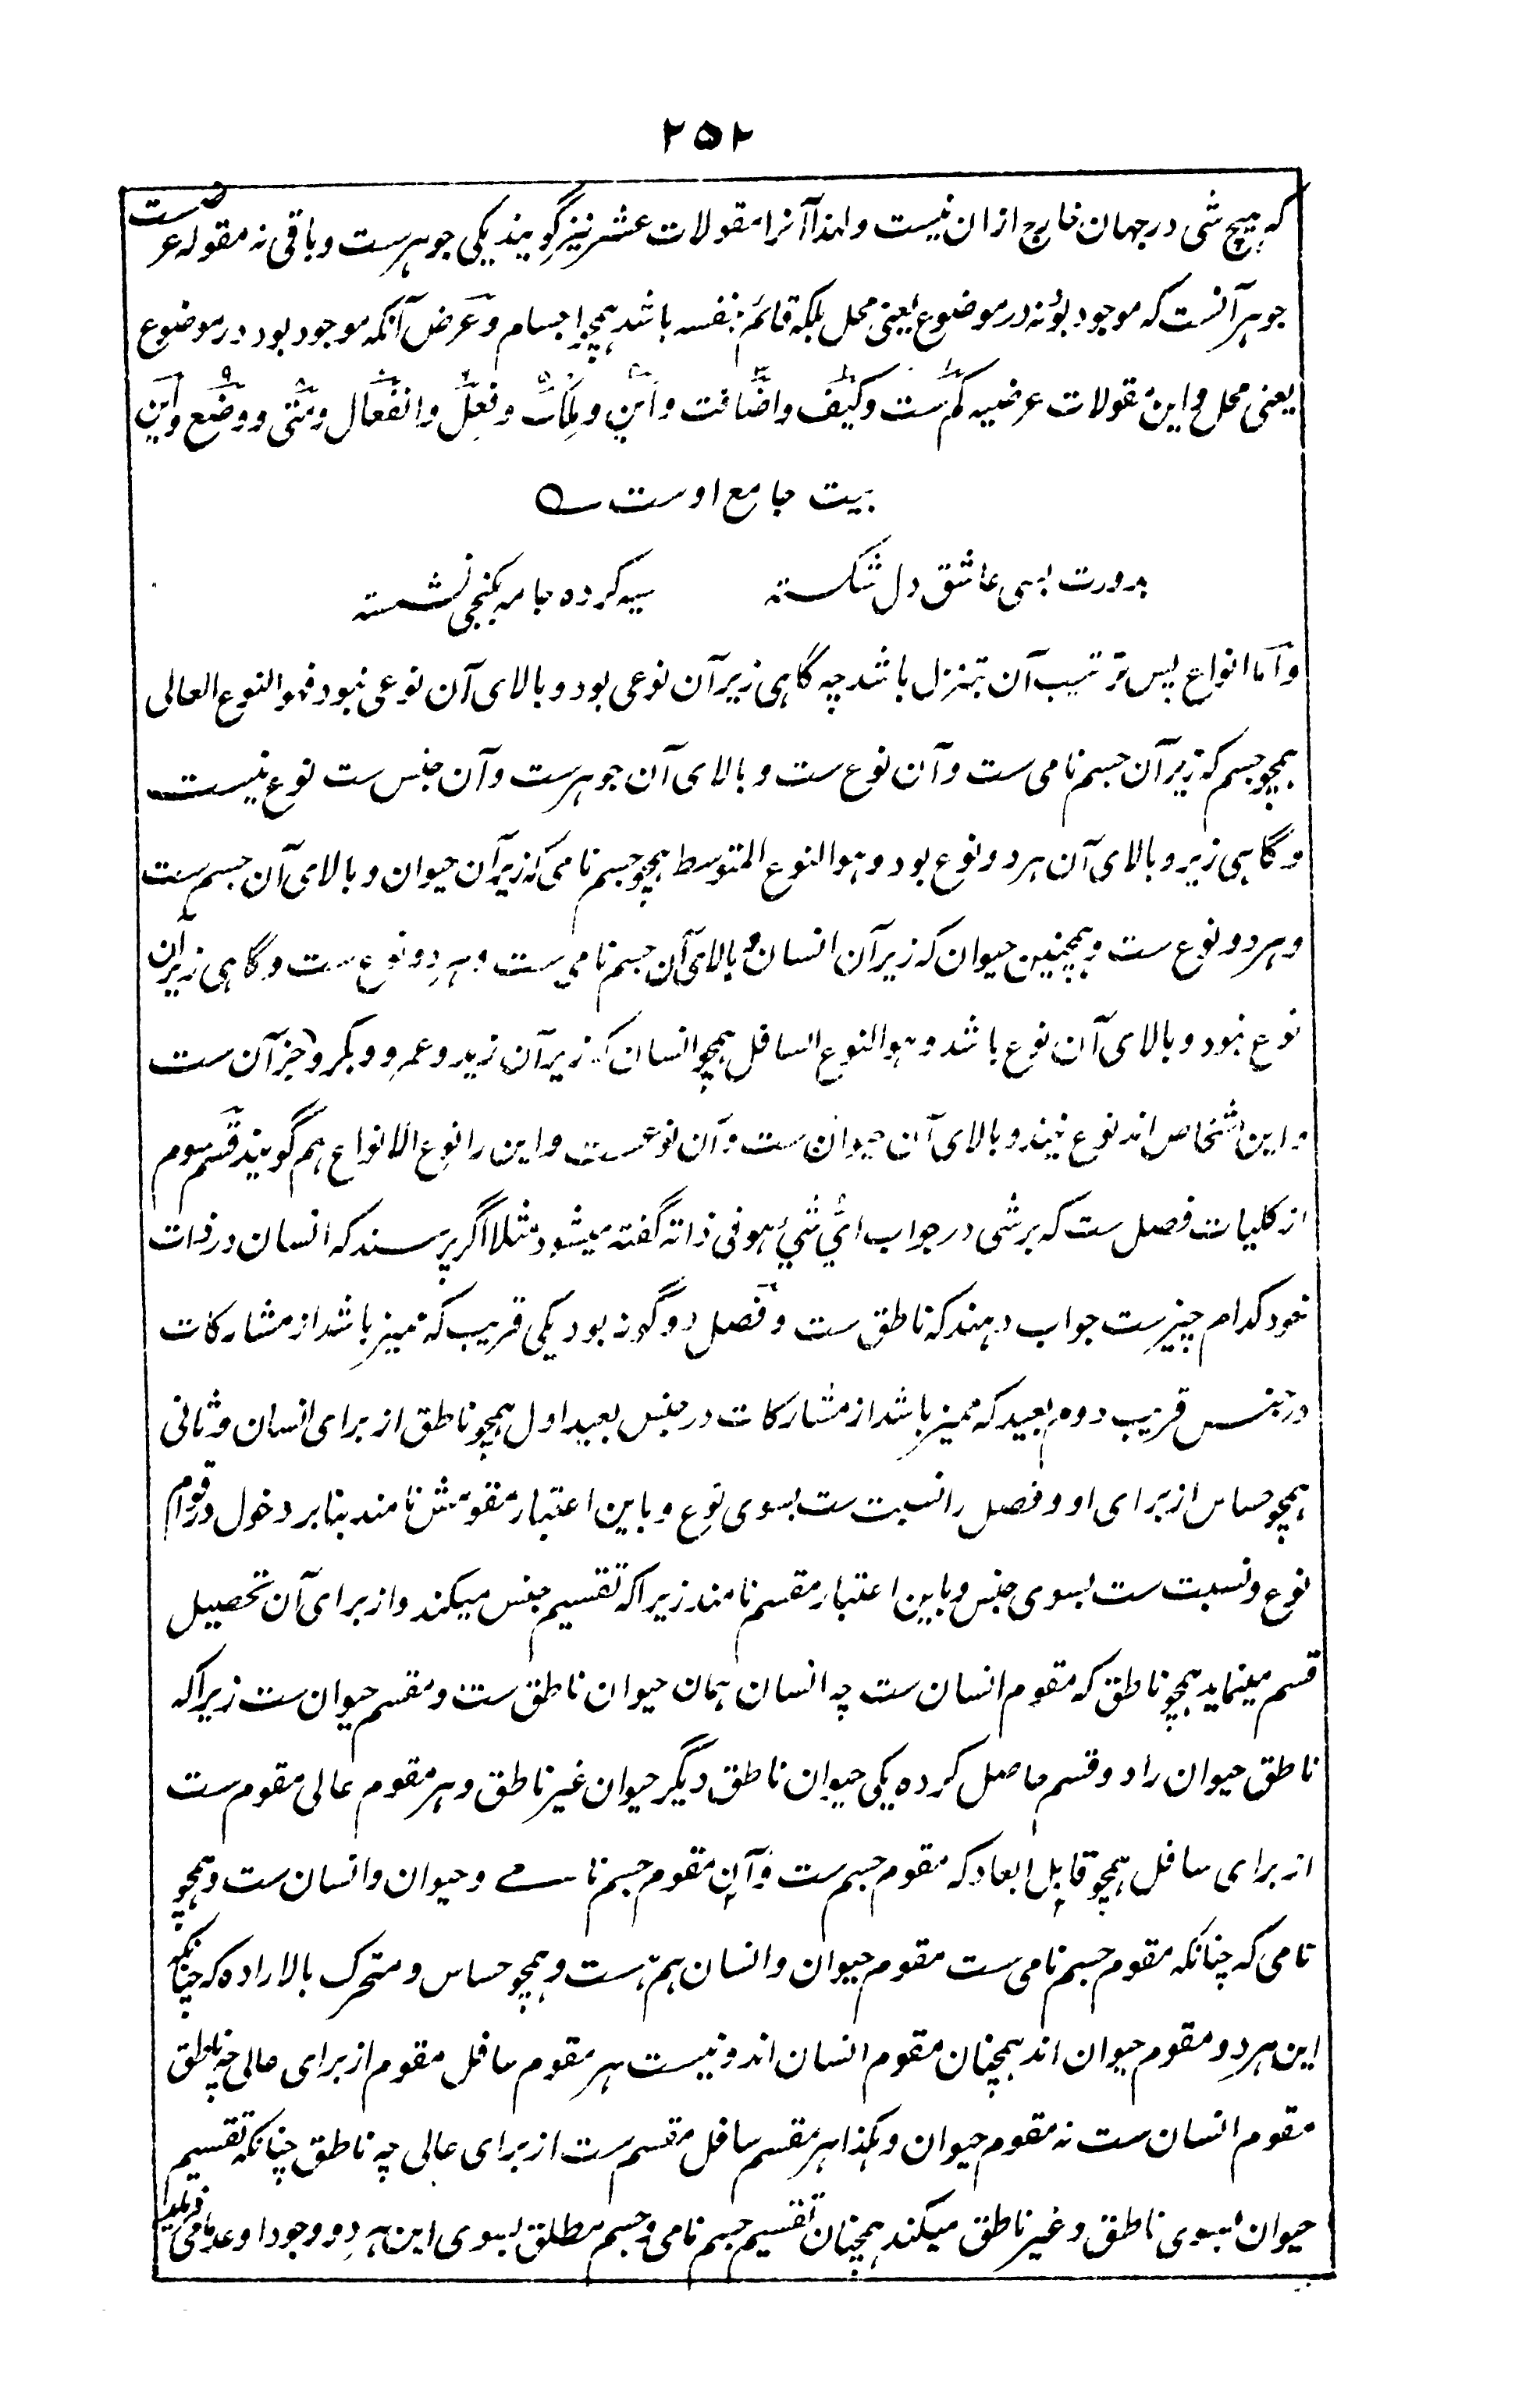 ۲۵۲
که هیچ شی در جهان خارج ازان نیست و لهذا آنرا مقولات عشر نیز گویند یکی جوهرست و باقی نه مقوله عرضست
جوهر آنست که موجود بود نه در موضوع یعنی محل بلکه قائم بنفسه باشد همچو اجسام و عرض آنکه موجود بود در موضوع
یعنی محل و این مقولات عرضیه کم ست و کیف و اضافت و این و ملک و فعل و انفعال و متی و وضع و این
بیت جامع اوست
بدورت بسی عاشق دل شکسته سیه کرده جامه بکنجی نشسته
و اما انواع پس ترتیب آن بتنزل باشد چه گاهی زیر آن نوعی بود و بالای آن نوعی نبود فهو النوع العالی
همچو جسم که زیر آن جسم نامی ست و آن نوع ست و بالای آن جوهرست و آن جنس ست نوع نیست
و گاهی زیر و بالای آن هر دو نوع بود و هو النوع المتوسط همچو جسم نامی که زیر آن حیوان و بالای آن جسم ست
و هر دو نوع ست و همچنین حیوان که زیر آن انسان و بالای آن جسم نامی ست و هر دو نوع ست و گاهی زیر آن
نوع نبود و بالای آن نوع باشد و هو النوع السافل همچو انسان که زیر آن زید و عمرو و بکر و جز آن ست
و این اشخاص اند نوع نیند و بالای آن حیوان ست و آن نوعست و این را نوع الانواع هم گویند قسم سوم
از کلیات فصل ست که بر شی در جواب ایُّ شیٍٔ هو فی ذاته گفته میشود مثلا اگر پرسند که انسان در ذات
خود کدام چیزست جواب دهند که ناطق ست و فصل دو گونه بود یکی قریب که ممیز باشد از مشارکات
در جنس قریب دوم بعید که ممیز باشد از مشارکات در جنس بعید اول همچو ناطق از برای انسان و ثانی
همچو حساس از برای او و فصل را نسبت ست بسوی نوع و باین اعتبار مقومش نامند بنابر دخول در قوام
نوع و نسبت ست بسوی جنس و باین اعتبار مقسم نامند زیرا که تقسیم جنس میکند و از برای آن تحصیل
قسم مینماید همچو ناطق که مقوم انسان ست چه انسان همان حیوان ناطق ست و مقسم حیوان ست زیرا که
ناطق حیوان را دو قسم حاصل کرده یکی حیوان ناطق دیگر حیوان غیر ناطق و هر مقوم عالی مقوم ست
از برای سافل همچو قابل ابعاد که مقوم جسم ست و آن مقوم جسم نامے و حیوان و انسان ست و همچو
نامی که چنانکه مقوم جسم نامی ست مقوم حیوان و انسان هم ست و همچو حساس و متحرک بالاراده که چنانکه
این هر دو مقوم حیوان اند همچنان مقوم انسان اند و نیست هر مقوم سافل مقوم از برای عالی چه ناطق
مقوم انسان ست نه مقوم حیوان و هکذا هر مقسم سافل مقسم ست از برای عالی چه ناطق چنانکه تقسیم
حیوان بسوی ناطق و غیر ناطق میکند همچنان تقسیم جسم نامی و جسم مطلق بسوی این هر دو وجودا و عدما می